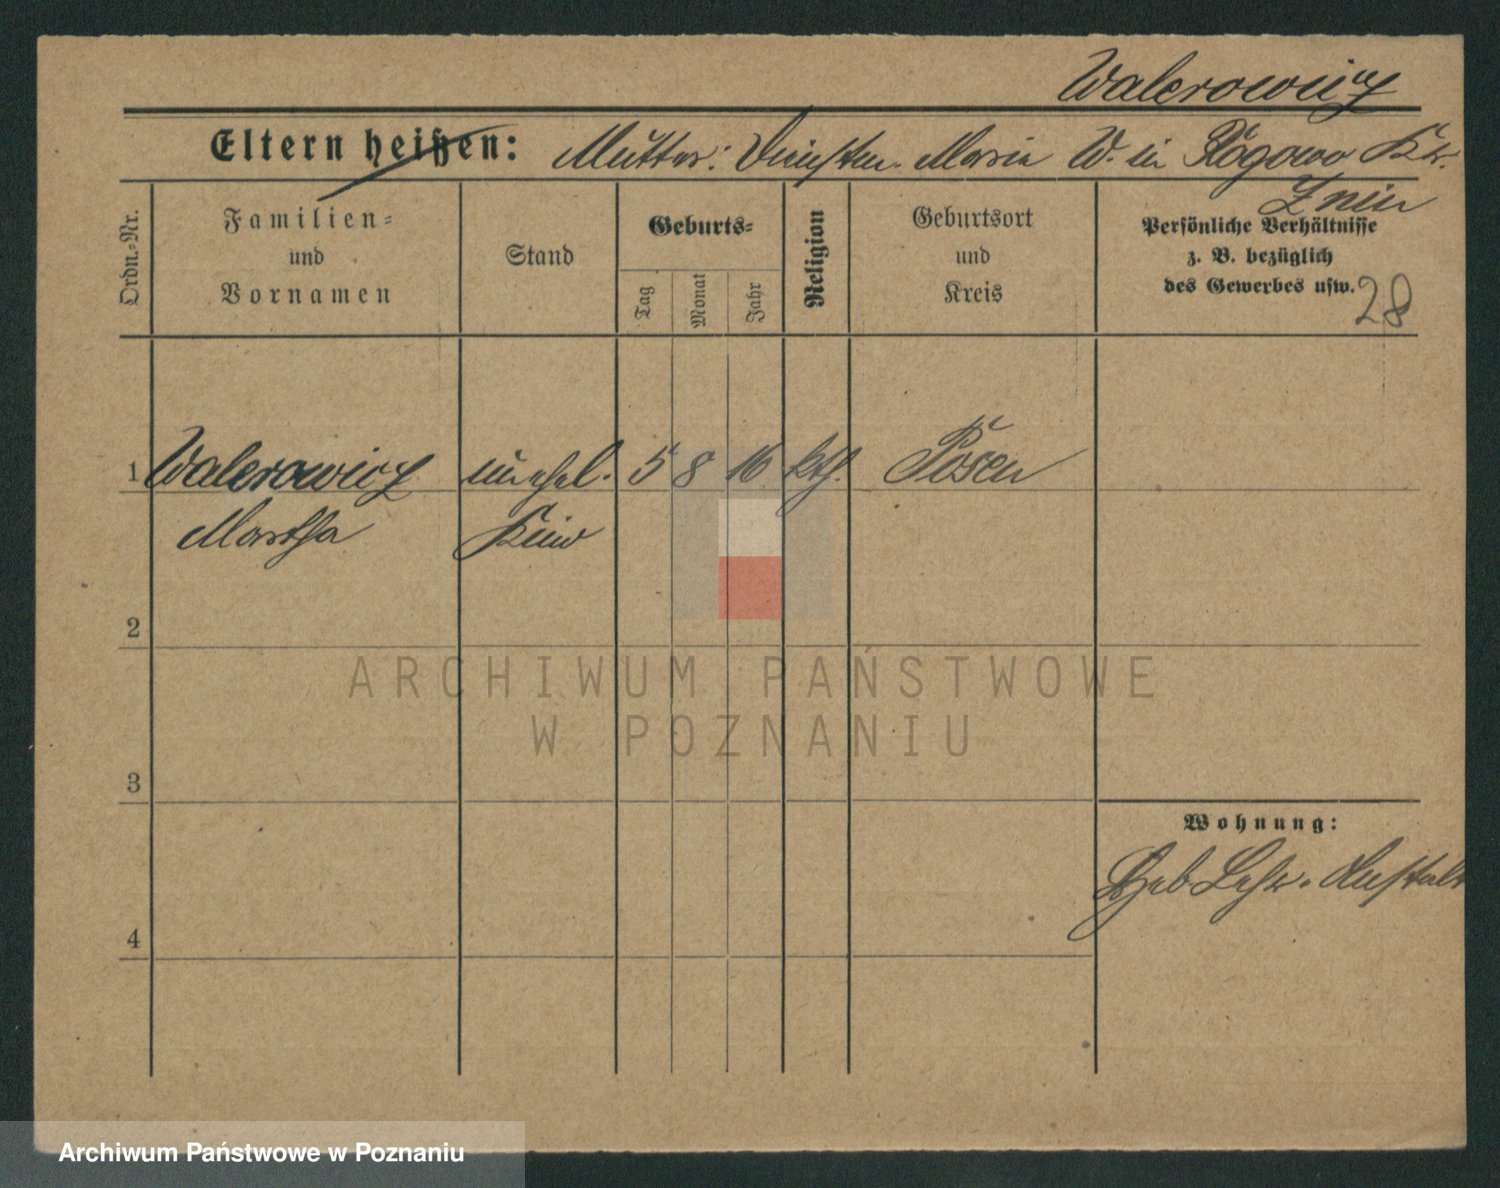 Walerowicz
Eltern heißen: Mutter: Dienstm. Maria W. in Rogowo Kr.
Znin
Ordn.-Nr.
Familien-
und
Vornamen
Stand
Geburts-
Tag
Monat
Jahr
Religion
Geburtsort
und
Kreis
Persönliche Verhältnisse
z. B. bezüglich
des Gewerbes usw.
28
1 Walerowicz unehel. 5 8 16 kth. Posen
Martha Kind
2
ARCHIWUM PAŃSTWOWE
W POZNANIU
3
Wohnung:
Heb. Lehr. Anstalt
4
Archiwum Państwowe w Poznaniu